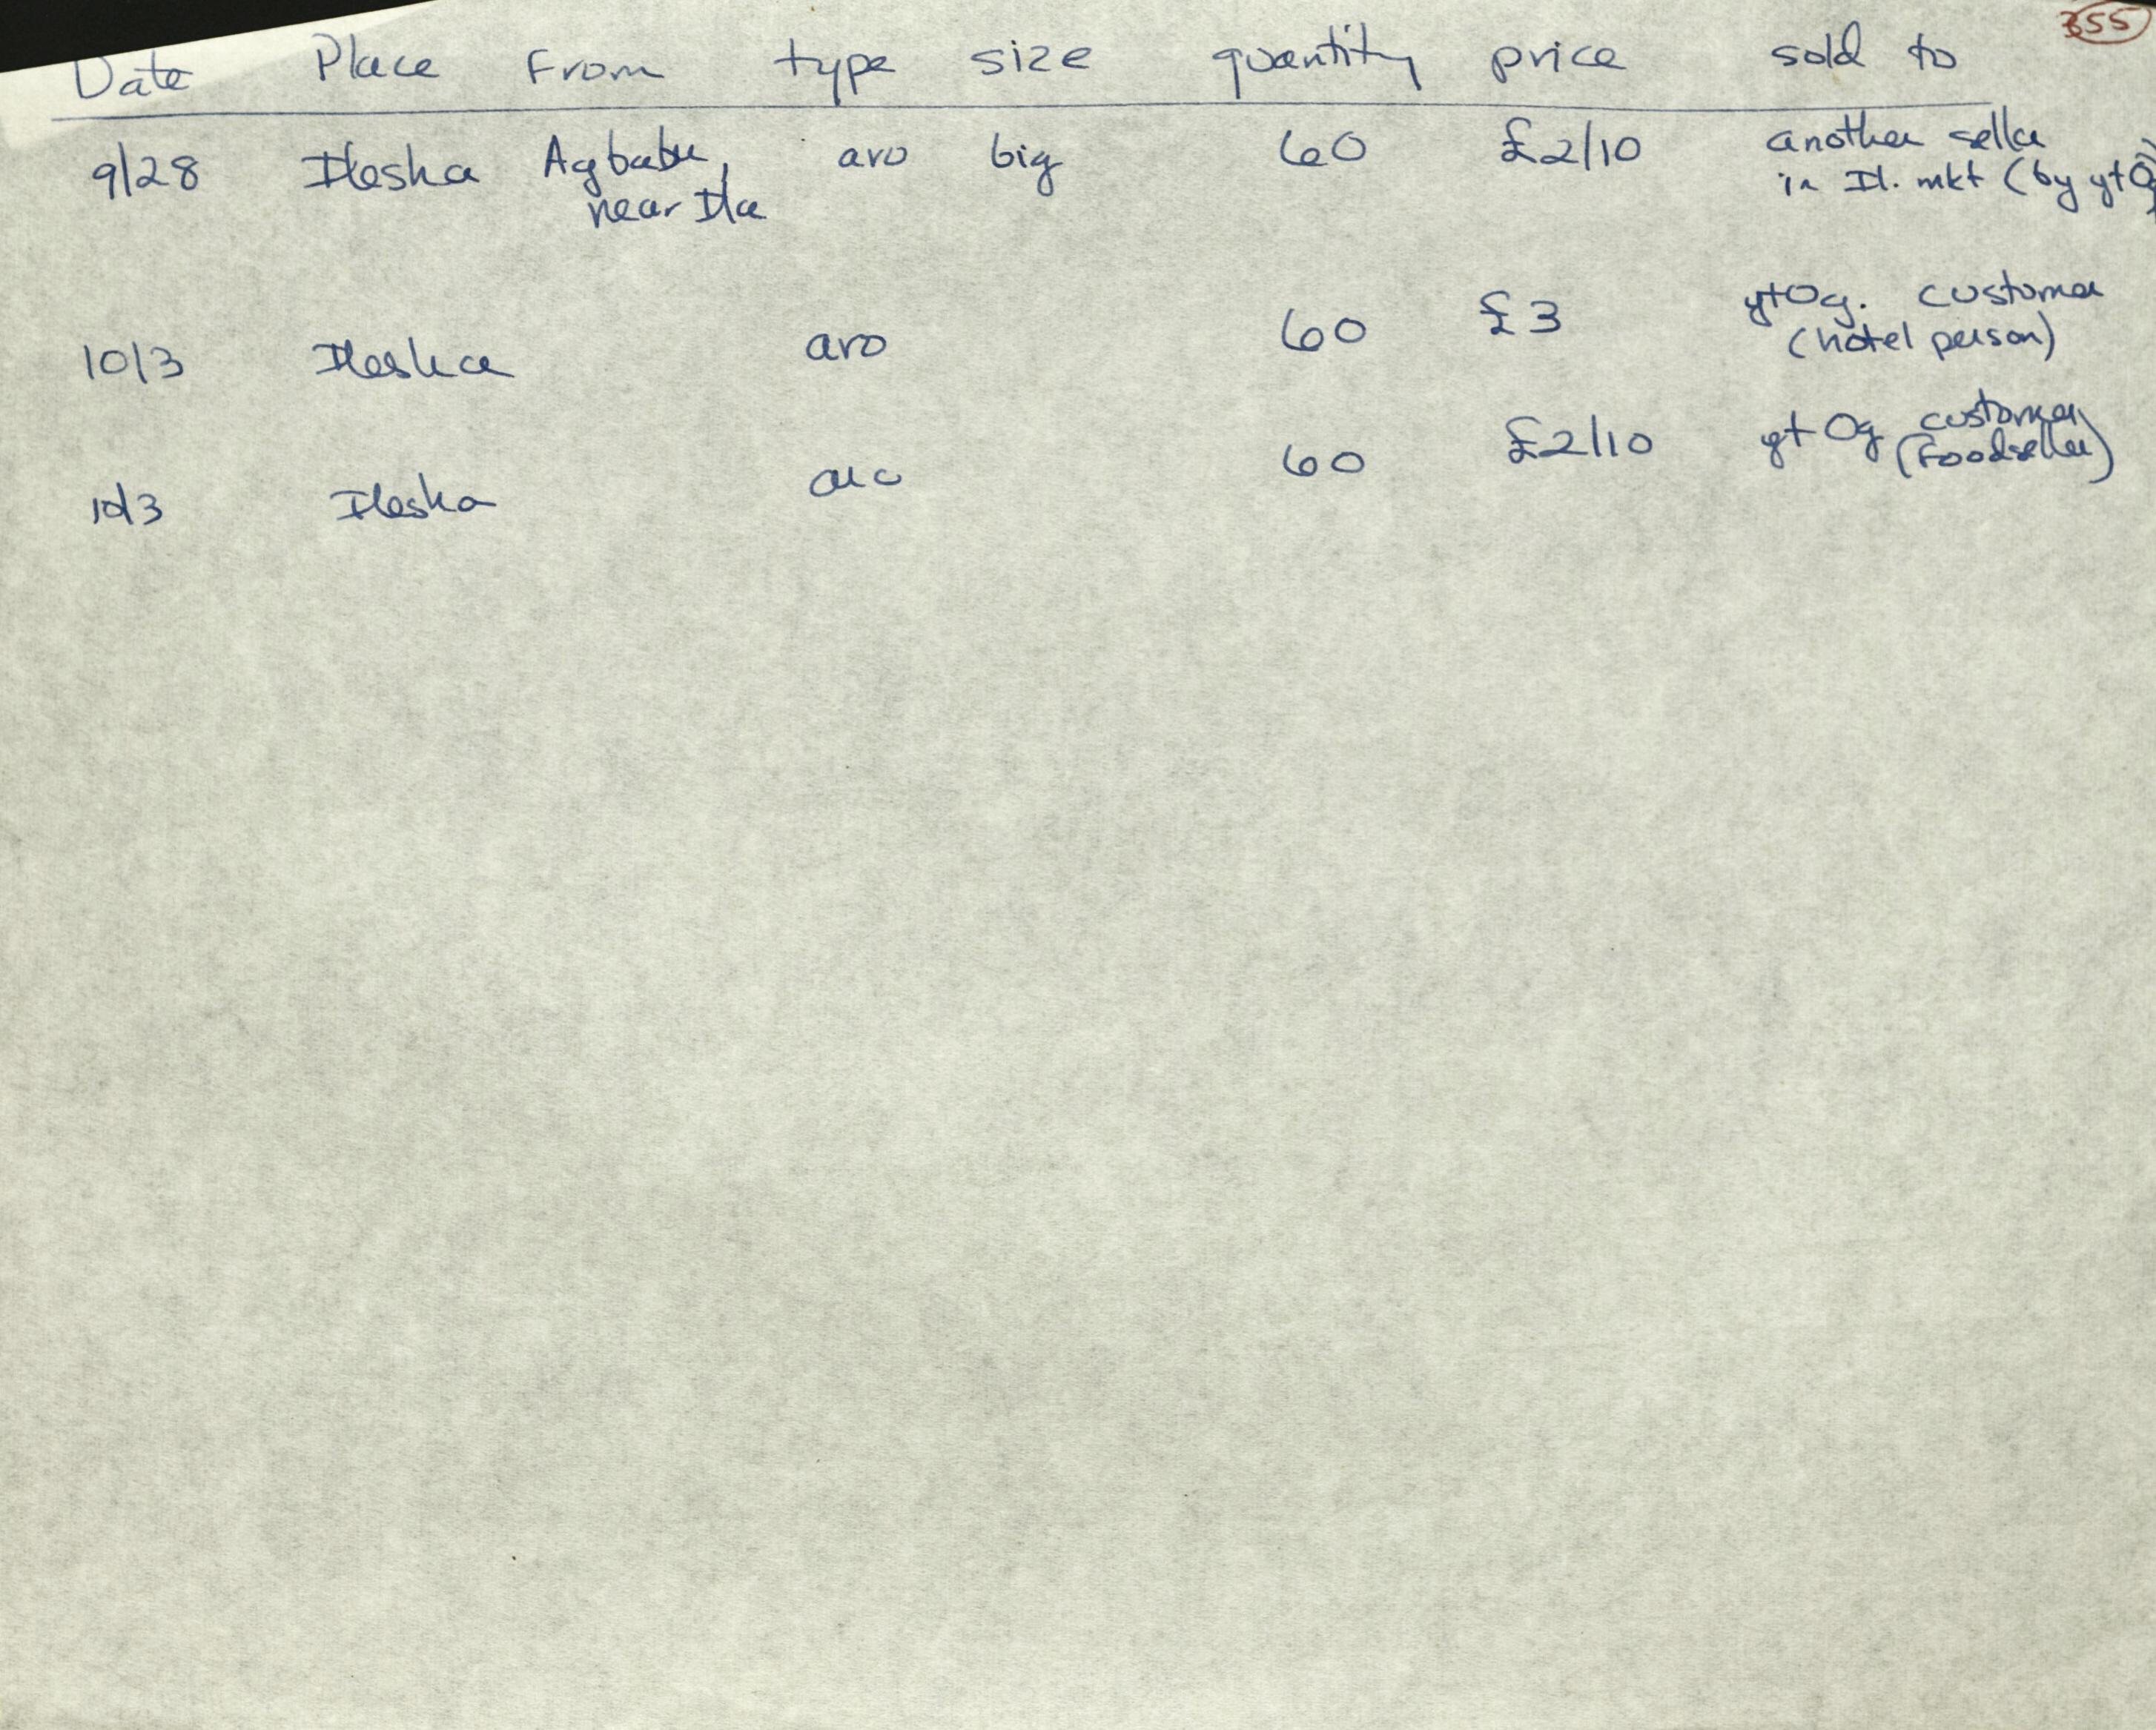 355
Date Place From type size quantity price sold to
9/28 Ilesha Agbabu, aro big 60 £2/10 another seller
near Ila in Il. mkt (by yt
10/3 Ilesha aro 60 £3 yt Og. customer
(hotel person)
10/3 Ilesha aro 60 £2/10 yt Og customer
(foodseller)